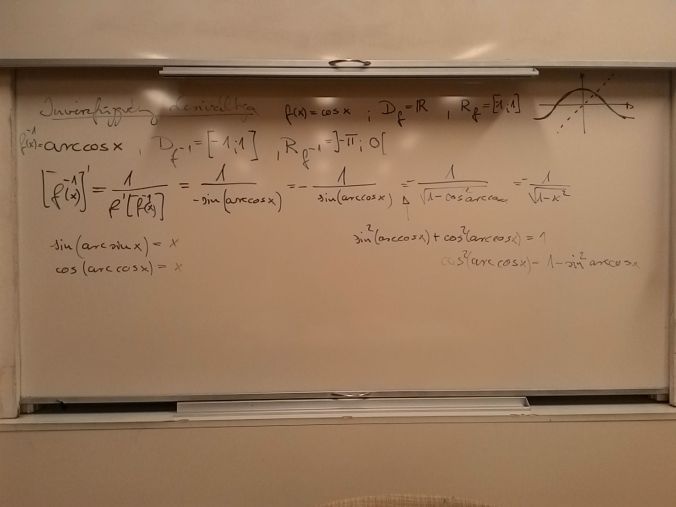 Inverzfüggvény deriváltja f(x) = cos x ; D_f = ℝ , R_f = [-1;1]
f⁻¹(x) = arccos x , D_f⁻¹ = [-1;1] , R_f⁻¹ = ]-π; 0[
[f⁻¹(x)]' = 1/f'[f⁻¹(x)] = 1/-sin(arccos x) = - 1/sin(arccos x) = - 1/√(1-cos² arccos x) = - 1/√(1-x²)
sin(arc sin x) = x sin²(arccos x) + cos²(arccos x) = 1
cos(arc cos x) = x cos²(arc cos x) = 1 - sin² arc cos x